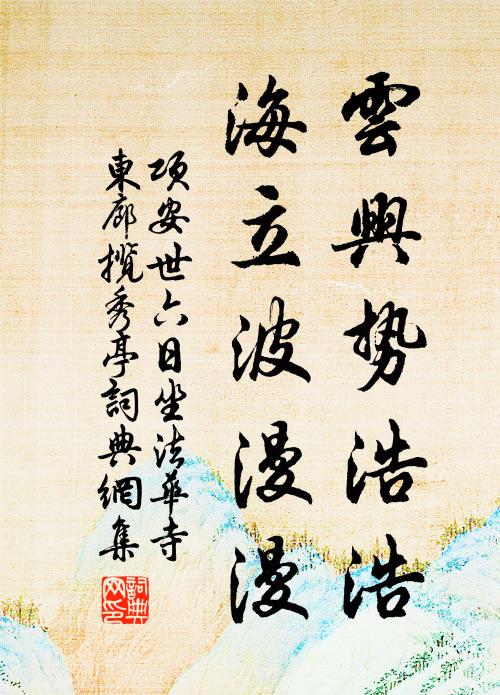 雲興勢浩浩
海立波漫漫
項安世六日坐法華寺
東廊攬秀亭詞典網集
詞典網印